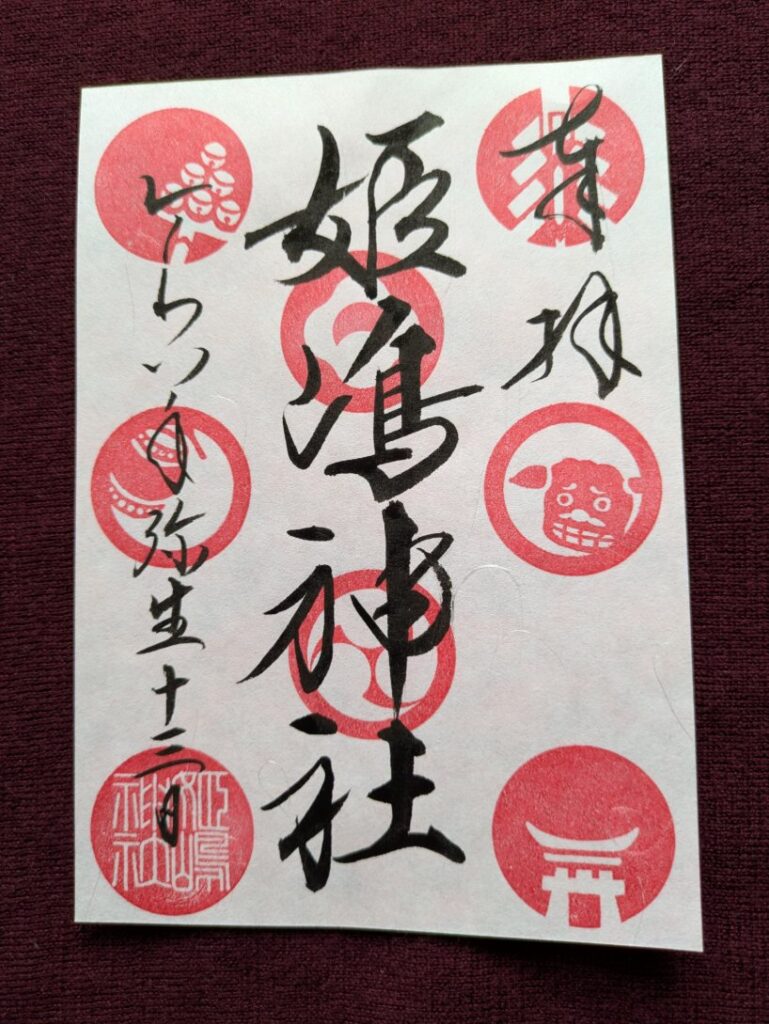 奉拝
姫嶋神社
令和八年弥生十三日
姫嶋
神社